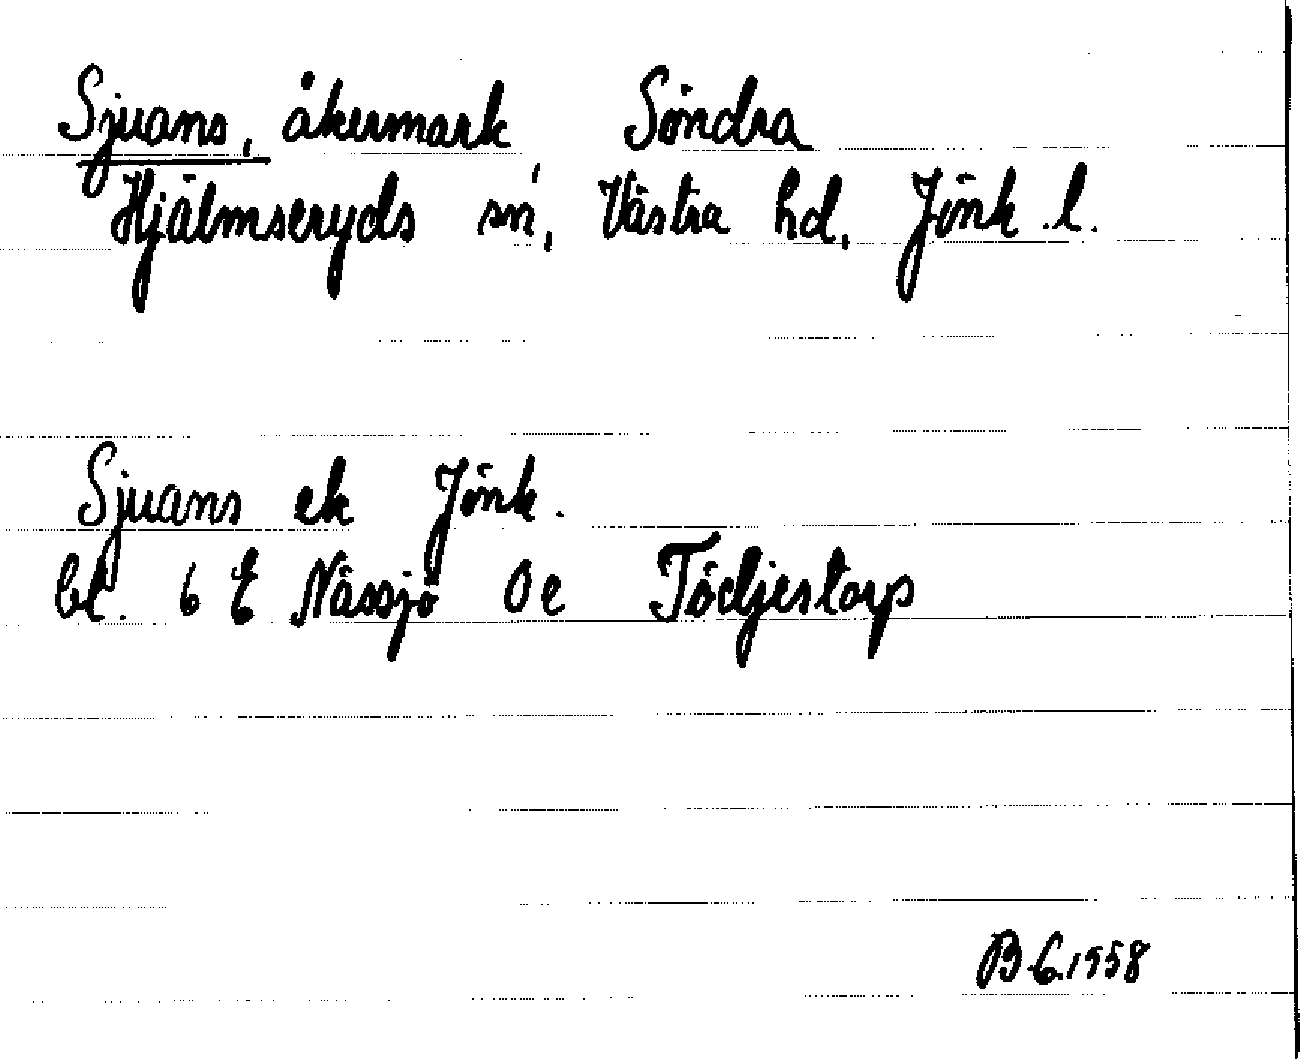 Sjuans, åkermark, Söndra
Hjälmseryds sn, Västra hd, Jönk.l.
Sjuans ek Jönk.
bl. 6 E Nässjö 0e Tödjestorp
B G.1958